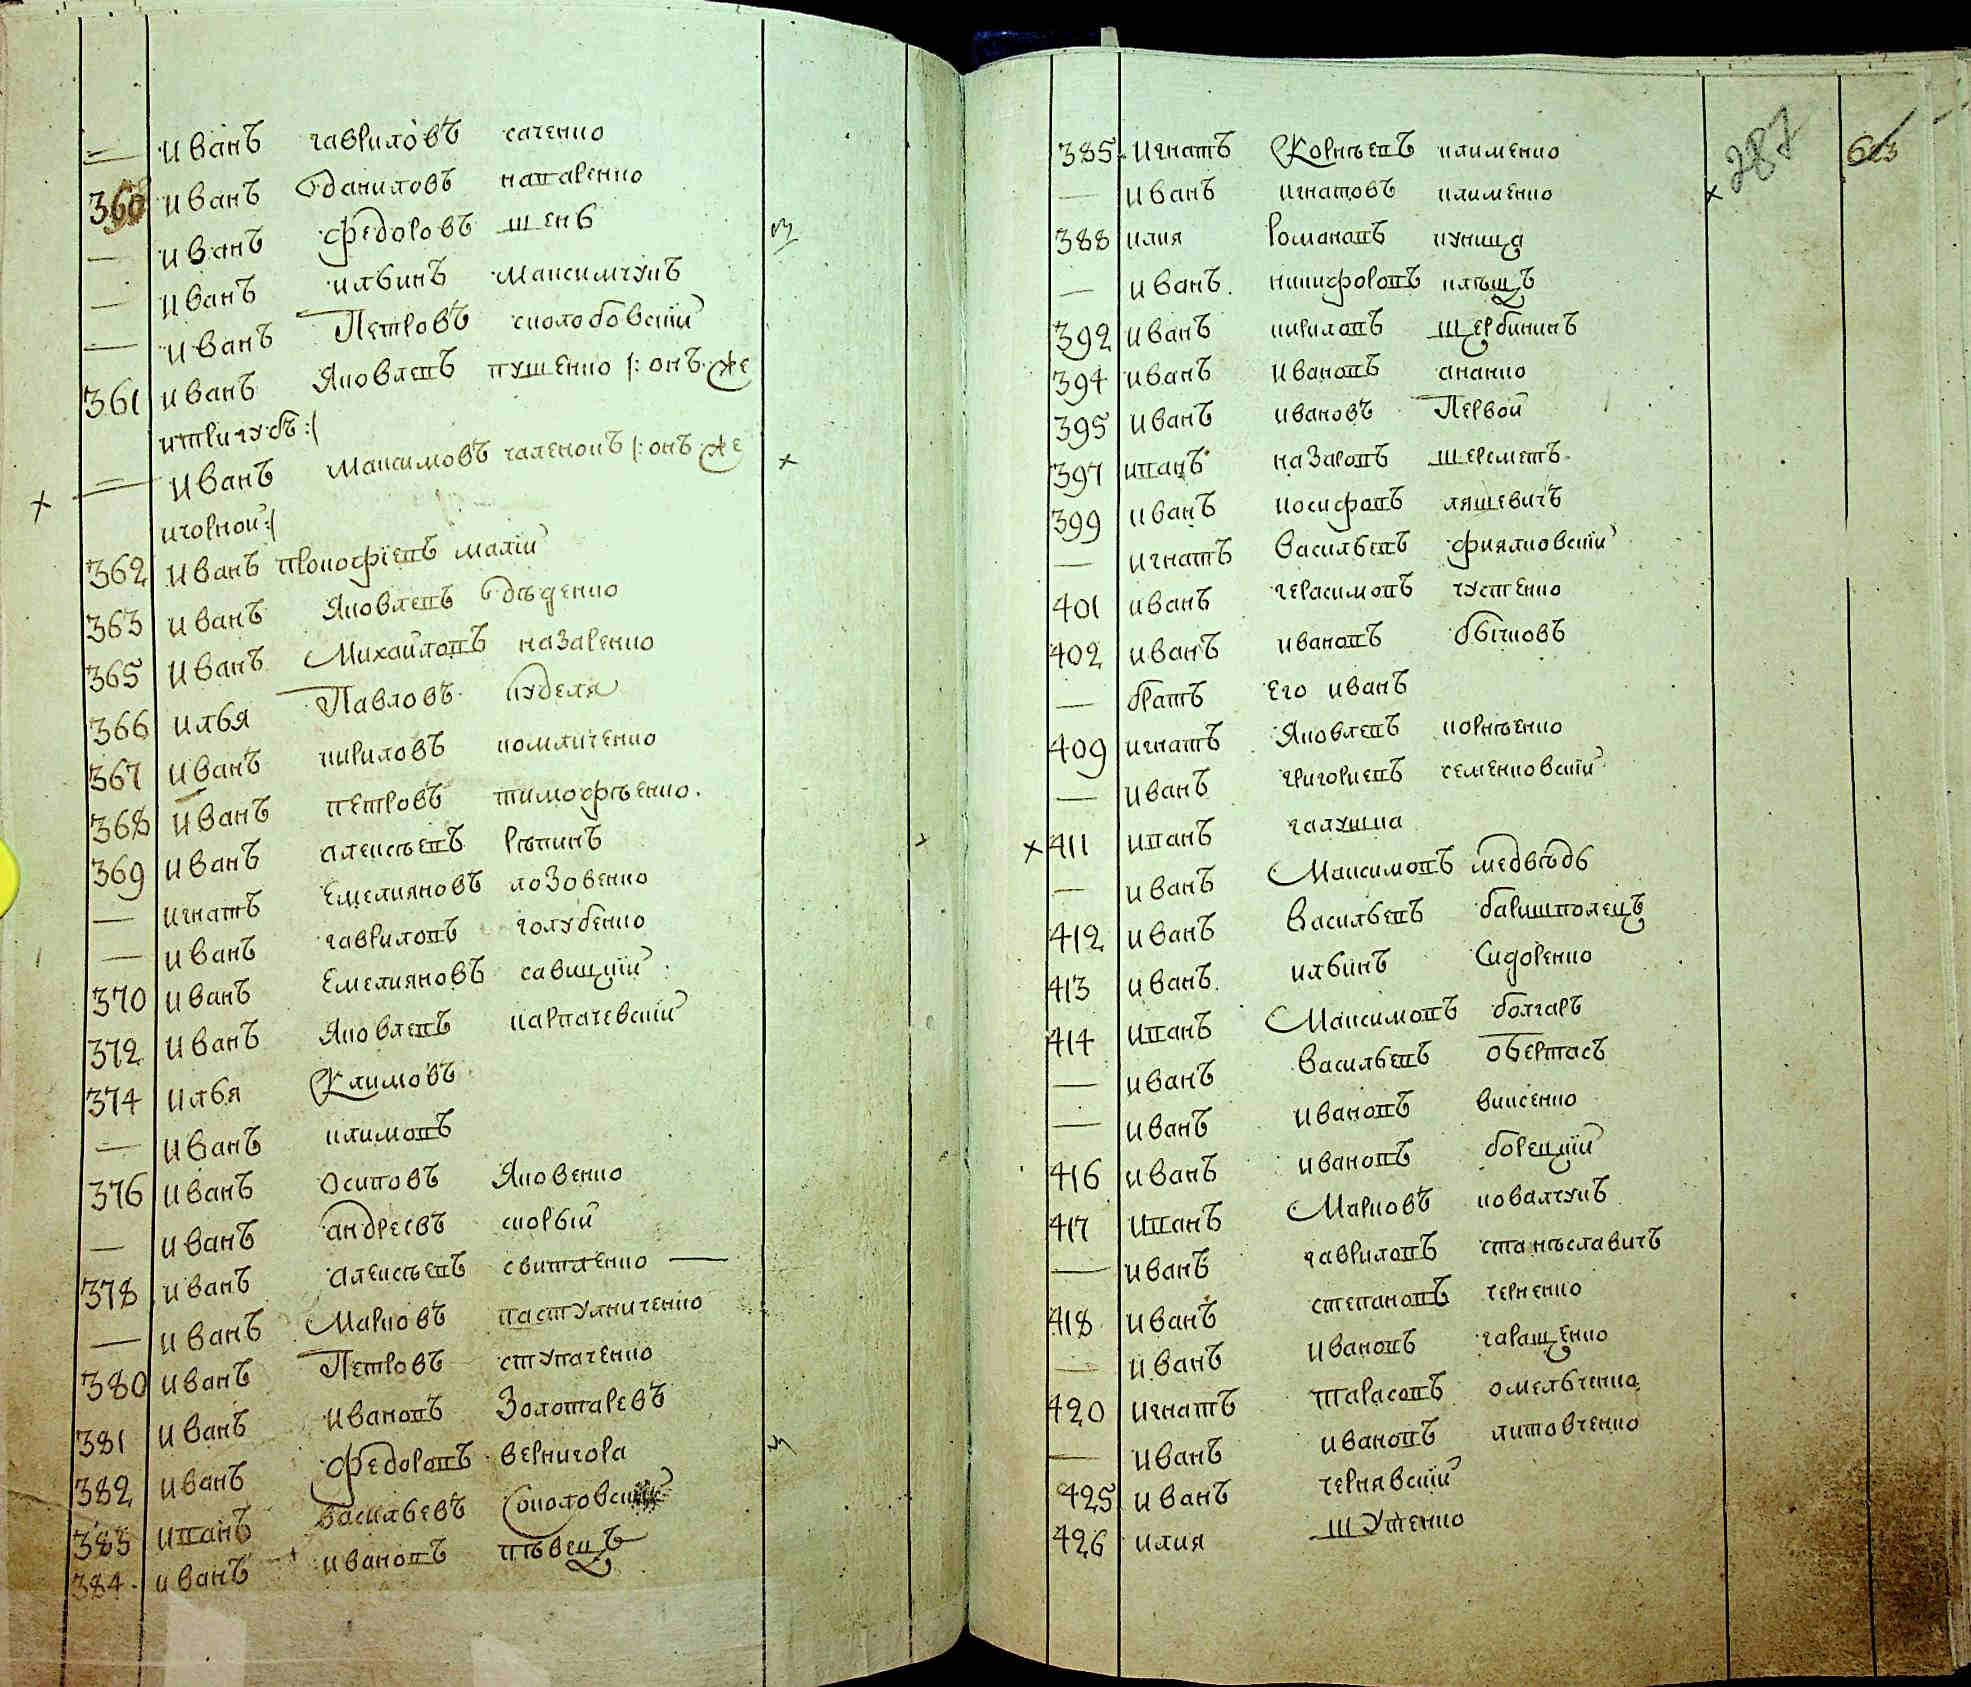 — Иванъ гавриловъ саченко
360 иванъ даниловъ назаренко
— иванъ федоровъ шень
— иванъ ильинъ максимчукъ
— иванъ Петровъ сколобовскій
361 иванъ Яковлевъ пушенко /: онъ же
итригубъ :/
— Иванъ максимовъ чаленокъ /: онъ же
игорной :/
362 иванъ прокофіевъ малій
363 иванъ Яковлевъ дѣденко
365 иванъ Михайловъ назаренко
366 илья Павловъ куделя
367 иванъ кириловъ комличенко
368 иванъ петровъ тимофѣенко.
369 иванъ алексѣевъ рѣпинъ
— игнатъ Емелияновъ лозовенко
— иванъ гавриловъ голубенко
370 иванъ Емелияновъ савицкій
372 иванъ Яковлевъ карпачевскій
374 илья Климовъ
— иванъ климовъ
376 иванъ осиповъ Яковенко
— иванъ андреевъ скорый
378 иванъ алексѣевъ свитленко —
— иванъ Марковъ пастушниченко
380 иванъ Петровъ ступаченко
381 иванъ ивановъ Золотаревъ
382 иванъ федоровъ вернигора
383 иванъ васильевъ Соколовскій
384. иванъ ивановъ пѣвецъ
385. игнатъ Корнѣевъ клименко 287 603
— иванъ игнатовъ клименко
388 илия романовъ куница
— иванъ никифоровъ клѣщъ
392 иванъ кириловъ щербининъ
394 иванъ ивановъ ананко
395 иванъ ивановъ Первой
397 иванъ назаровъ шереметъ.
399 иванъ иосифовъ ляшевичъ
— игнатъ васильевъ фиялковскій
401 иванъ герасимовъ густенко
402 иванъ ивановъ бычковъ
— братъ Его иванъ
409 игнатъ Яковлевъ корнѣенко
— иванъ григориевъ семенковскій
411 иванъ галушка
— иванъ Максимовъ медвѣдь
412 иванъ васильевъ баришполецъ
413 иванъ ильинъ Сидоренко
414 иванъ Максимовъ болгаръ
— иванъ васильевъ овертасъ
— иванъ ивановъ виксенко
416 иванъ ивановъ борецкій
417 иванъ Марковъ ковалчукъ
— иванъ гавриловъ станѣславичъ
418 иванъ степановъ черненко
— иванъ ивановъ гаращенко
420 игнатъ тарасовъ омельченко
— иванъ ивановъ литовченко
425 иванъ чернявскій
426 илия шутенко